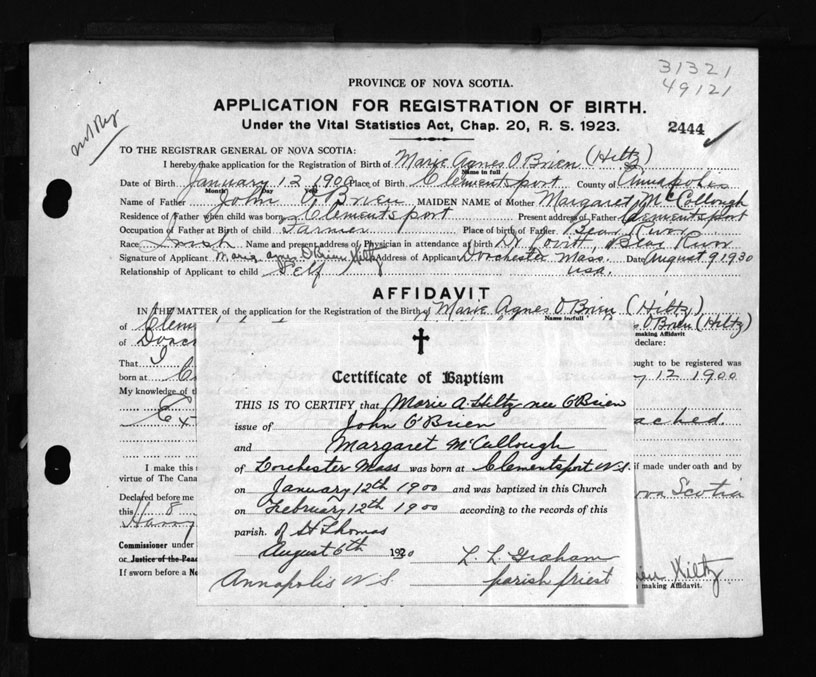 31321
49121
PROVINCE OF NOVA SCOTIA.
APPLICATION FOR REGISTRATION OF BIRTH.
Under the Vital Statistics Act, Chap. 20, R. S. 1923.
2444
TO THE REGISTRAR GENERAL OF NOVA SCOTIA:
I hereby make application for the Registration of Birth of Marie Agnes O'Brien (Hiltz)
Name in full
Date of Birth January 12 1900 Place of Birth Clementsport County of Annapolis
Month Day
Name of Father John O'Brien MAIDEN NAME of Mother Margaret McCollough
Residence of Father when child was born Clementsport Present address of Father Clementsport
Occupation of Father at Birth of child Farmer Place of birth of Father Bear River
Race Irish Name and present address of Physician in attendance at birth Dr Lovitt, Bear River
Signature of Applicant Marie Agnes O'Brien Hiltz Address of Applicant Dorchester Mass. Date August 9 1930
Relationship of Applicant to child Self USA.
AFFIDAVIT
IN THE MATTER of the application for the Registration of the Birth of Marie Agnes O'Brien (Hiltz)
Name in full
of Clem O'Brien (Hiltz)
making Affidavit
of Dorc declare:
That I ought to be registered was
born at C 12 1900
My knowledge of t
Ex ached.
I make this if made under oath and by
virtue of The Cana Nova Scotia
Declared before me
this 8
Harry
Commissioner under
or Justice of the Peac Hiltz
If sworn before a No making Affidavit.
Certificate of Baptism
THIS IS TO CERTIFY that Marie A. Hiltz nee O'Brien
issue of John O'Brien
and Margaret McCullough
of Dorchester Mass was born at Clementsport N.S.
on January 12th 1900 and was baptized in this Church
on February 12th 1900 according to the records of this
parish. of St Thomas
August 6th 1930 L. L. Graham
Annapolis N.S. parish priest